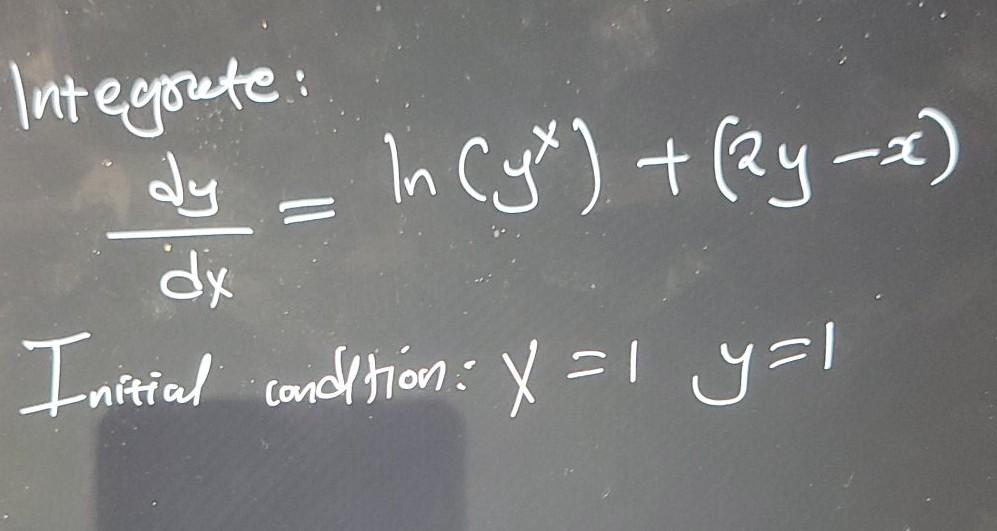 Integrate:
dy/dx = ln(y^x) + (2y-x)
Initial condition: x=1 y=1